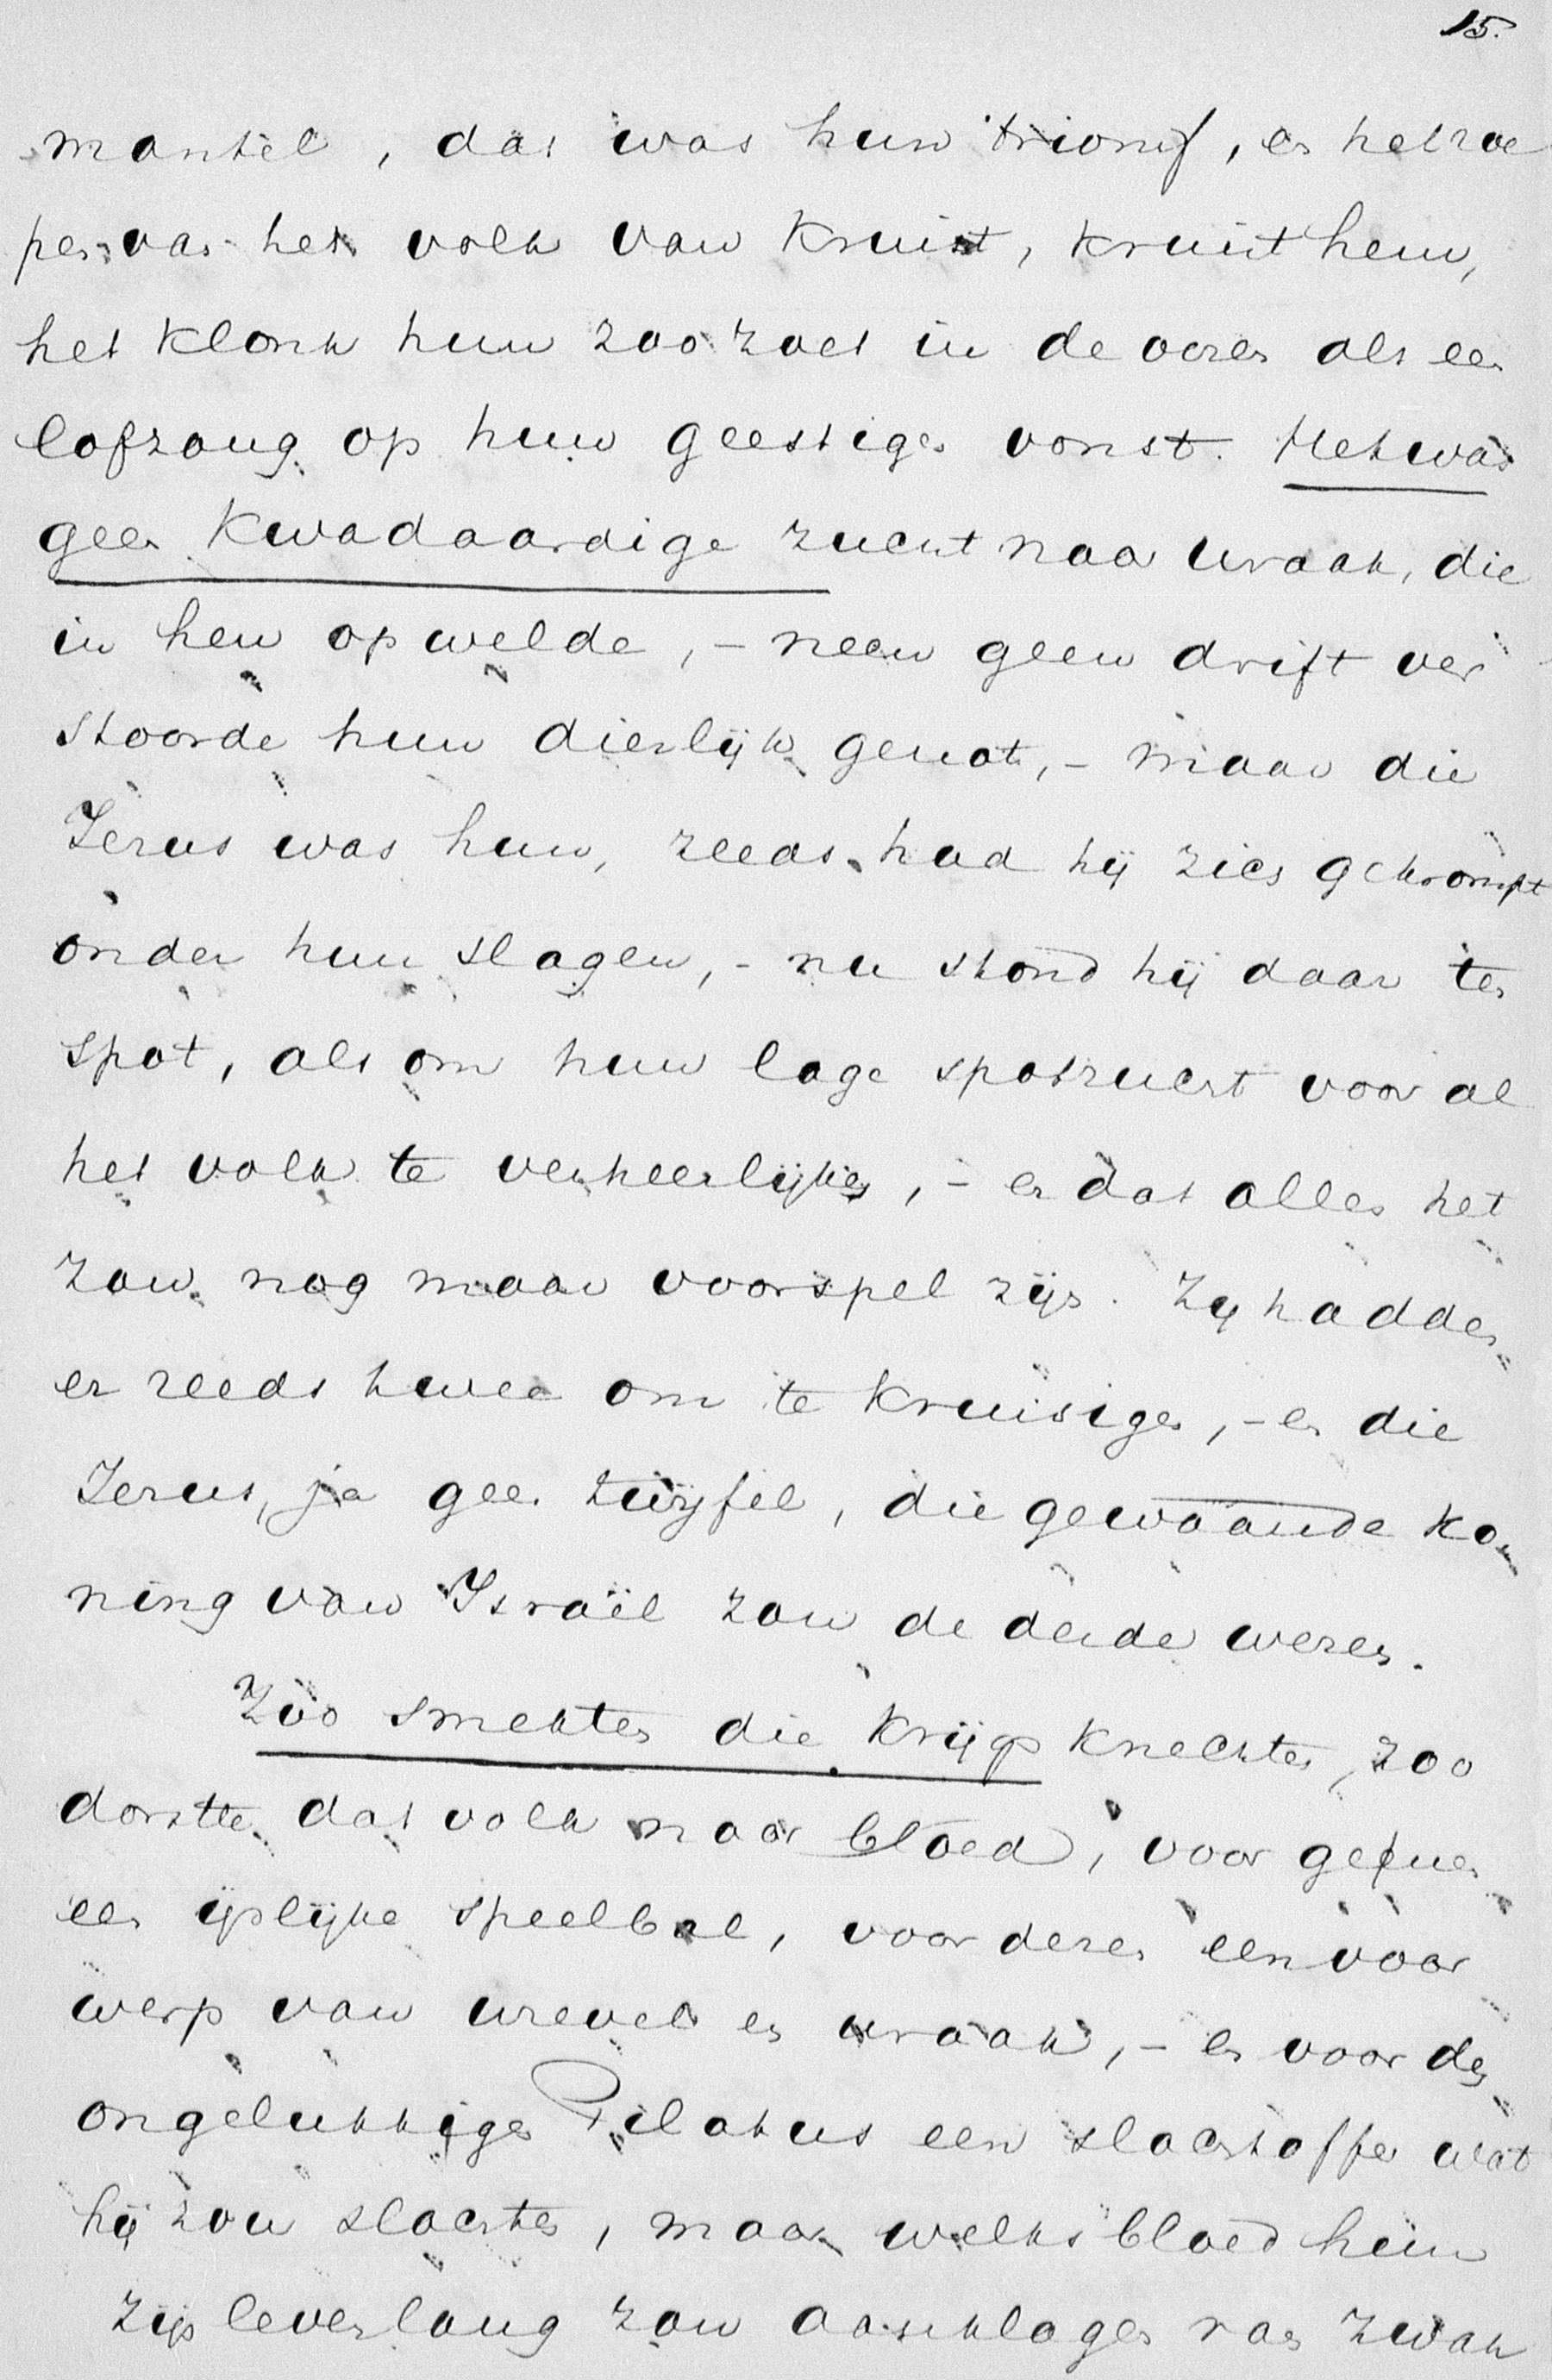 15.
mantel, dat was hun triomf, en het roe
pen van het volk van Kruist, kruist hem,
het klonk hun zoo zoet in de ooren als een
lofzang op hun geestigen vonst. Het was
geen kwadaardige zucht naar wraak, die
in hen opwelde, – neen geen drift ver
stoorde hun dierlijk genot, – maar die
Jezus was hun, reeds had hij zich gekrompt
onder hun slagen, – nu stond hij daar ten
spot, als om hun lage spotzucht voor al
het volk te verheerlijken, – en dat alles het
zou nog maar voorspel zijn. Zij hadden
er reeds twee om te kruisigen, – en die
Jezus, ja geen twijfel, die gewaande ko
ning van Israël zou de derde wezen.
Zóó smekten die krijgsknechten, zoo
dorstte dat volk naar bloed, voor genen
een ijslijke speelbal, voor dezen een voor
werp van wrevel en wraak, – en voor den
ongelukkigen Pilatus een slachtoffer wat
hij zou slachten, maar welks bloed hem
zijn levenlang zou aanklagen van zwak